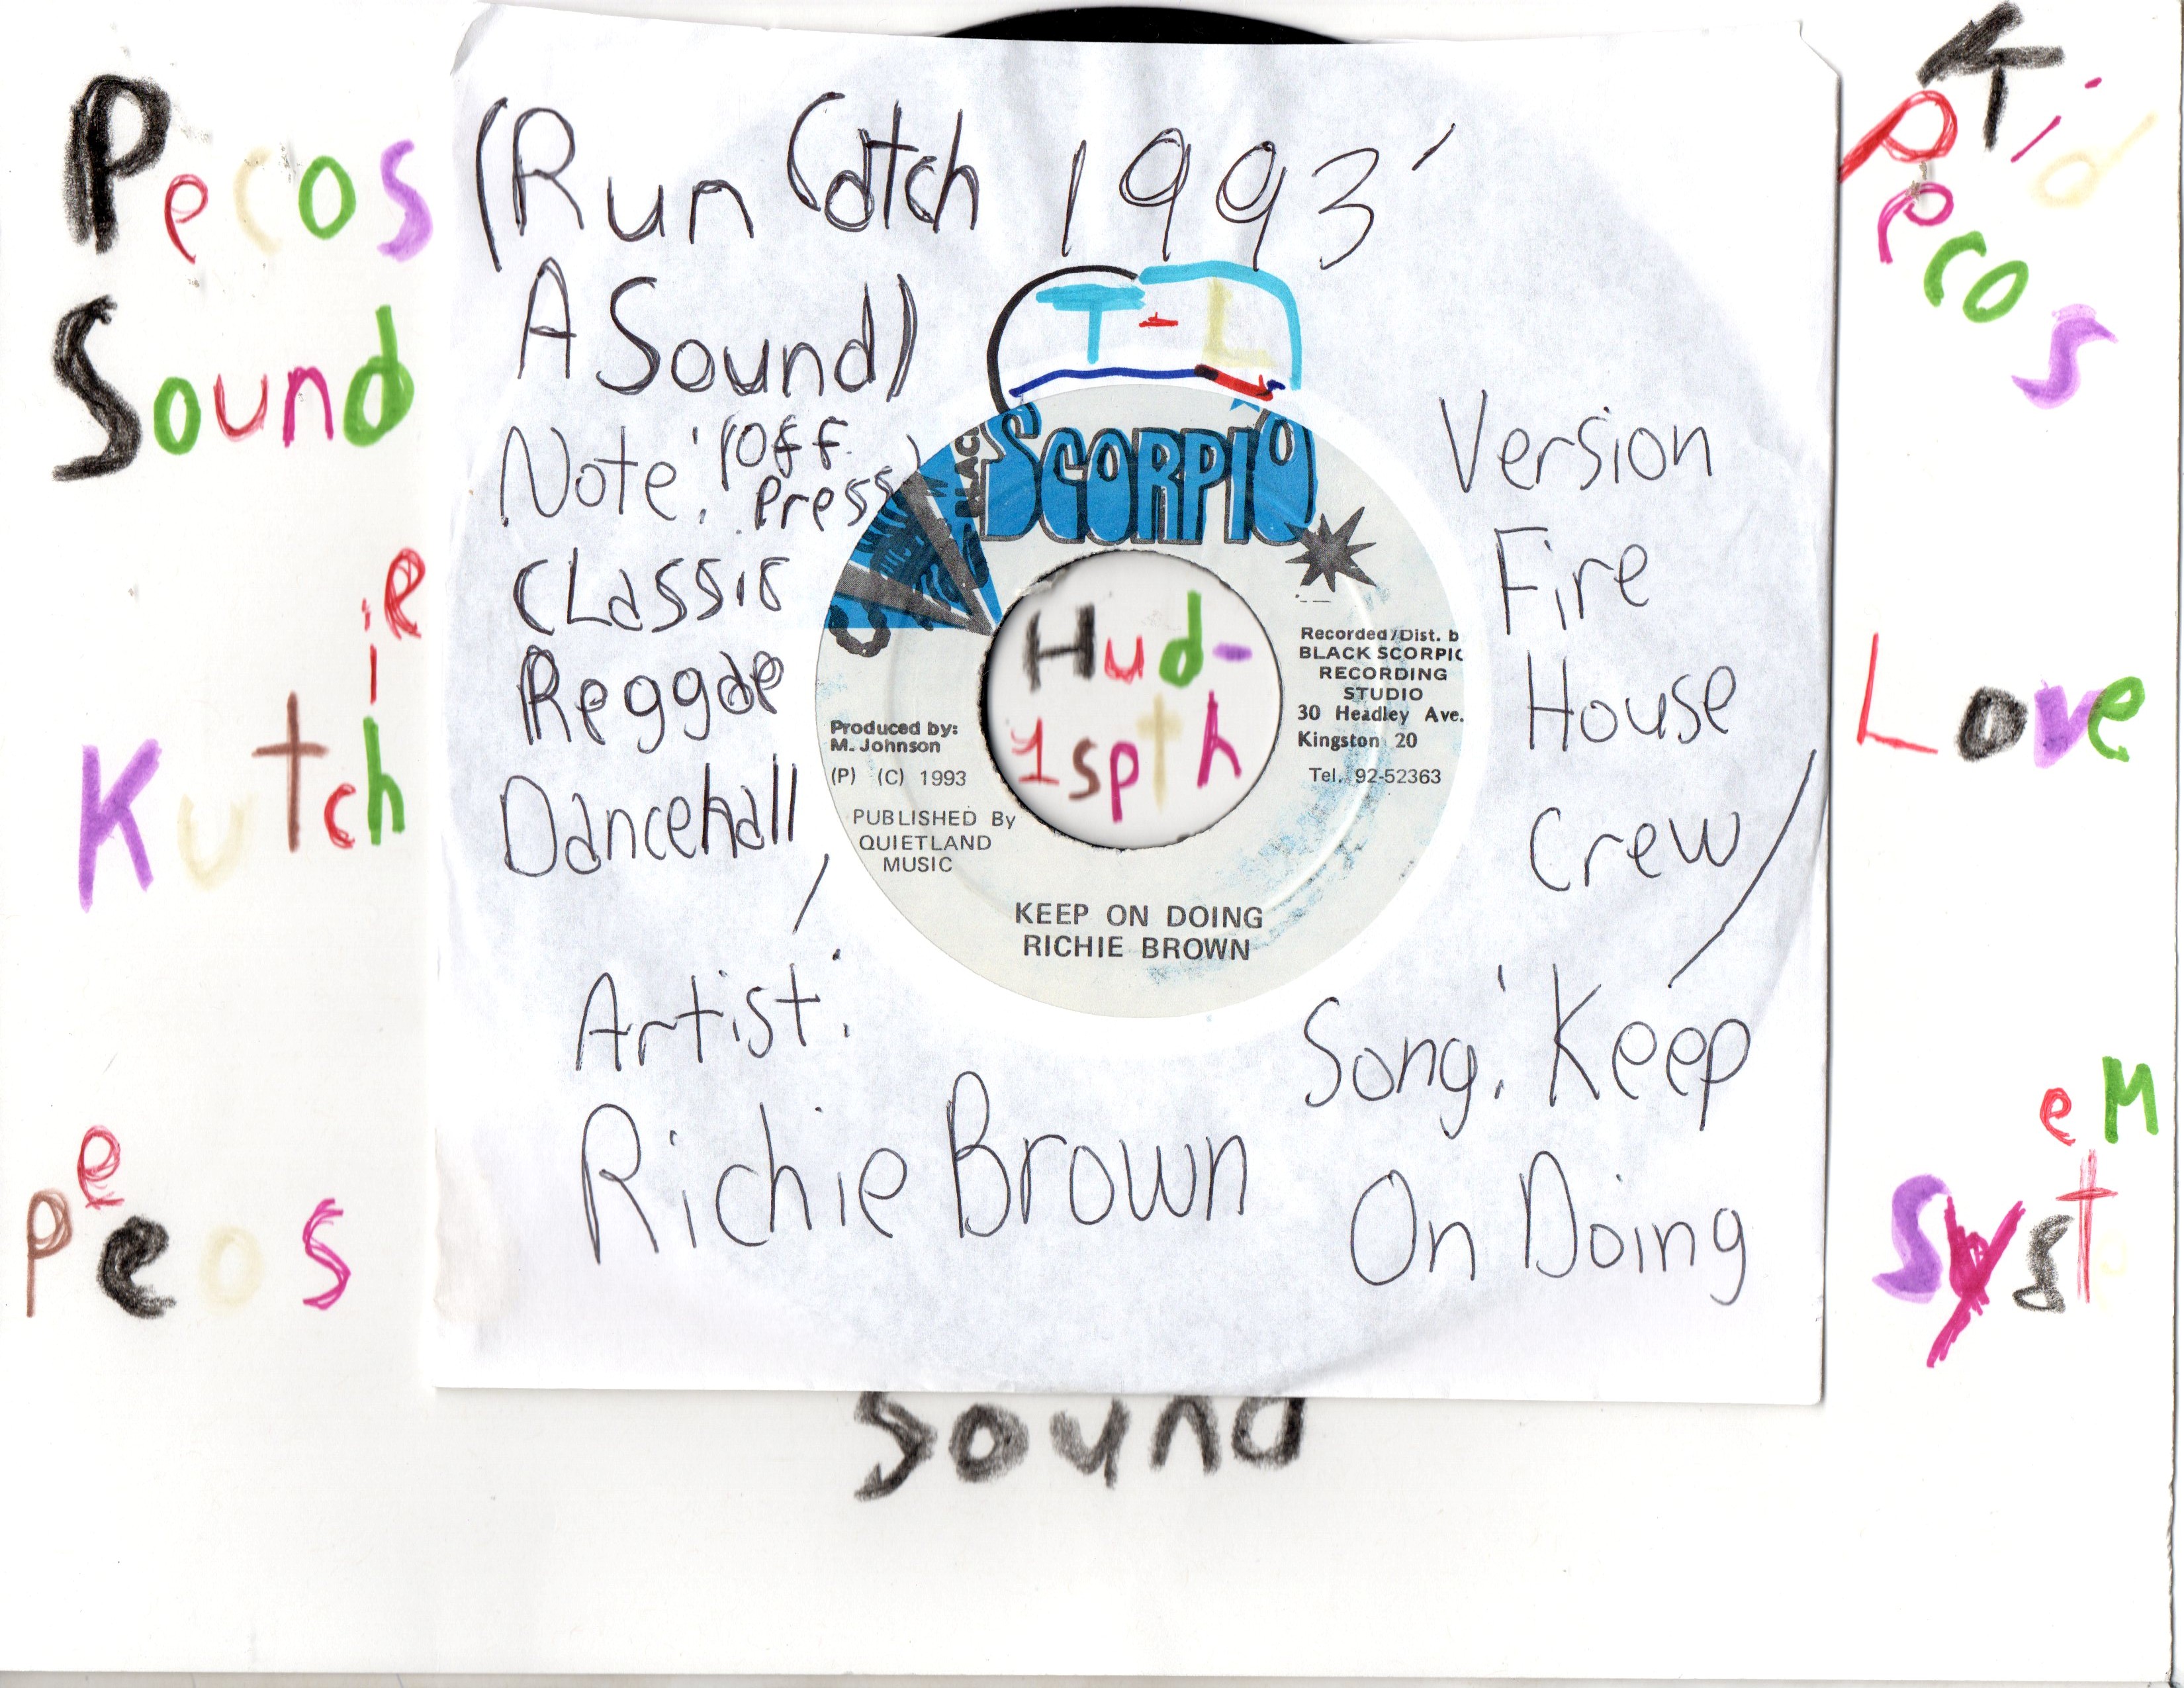 Pecos
Sound
ie
i
Kutch
e
Peos
(Run Catch
A Sound)
1993'
Note: (Off
Press)
CLassic
Reggae
Dancehall
Artist:
Richie Brown
T-L
BLACK
SCORPIO
Hud-
1spth
Produced by:
M. Johnson
(P) (C) 1993
PUBLISHED By
QUIETLAND
MUSIC
Recorded/Dist. b
BLACK SCORPIO
RECORDING
STUDIO
30 Headley Ave.
Kingston 20
Tel. 92-52363
KEEP ON DOING
RICHIE BROWN
Version
Fire
House
Crew/
Song: Keep
On Doing
Kid
P
Pecos
Love
eM
Syst
Sound